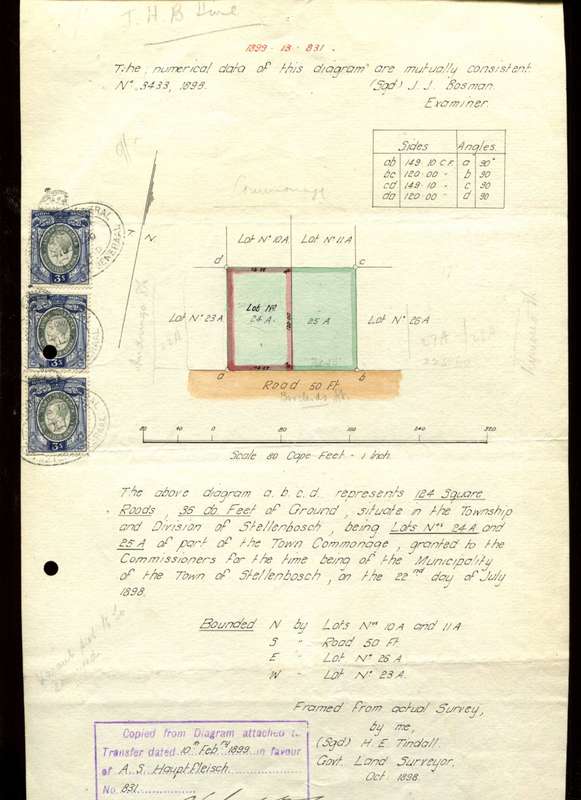 J. H. B
1899 · 13 · 831.
The numerical data of this diagram are mutually consistent
No 3433, 1899. (Sgd) J. J. Bosman.
Examiner.
Sides Angles.
ab 149.10 C.F. a 90°
bc 120.00 " b 90
cd 149.10 " c 90
da 120.00 " d 90
Commonage
N
Lot No 10A Lot No 11A
d c
Lot No 23A Lot No 24A. 25A Lot No 26A
a b
Road 50 Ft.
80 40 0 80 160 240 320
Scale 80 Cape Feet - 1 Inch.
The above diagram a.b.c.d. represents 124 Square
Roods, 35 do Feet of Ground, situate in the Township
and Division of Stellenbosch, being Lots Nos 24A and
25A of part of the Town Commonage, granted to the
Commissioners for the time being of the Municipality
of the Town of Stellenbosch, on the 22nd day of July
1898.
Bounded N by Lots Nos 10A and 11A
S " Road 50 Ft.
E " Lot No 26A
W " Lot No 23A.
Framed from actual Survey,
by me,
(Sgd) H. E. Tindall.
Govt. Land Surveyor.
Oct. 1898.
Copied from Diagram attached to
Transfer dated 10th Feb ry 1899 in favour
of A. S. Hauptfleisch.
No 831
3s
3s
3s